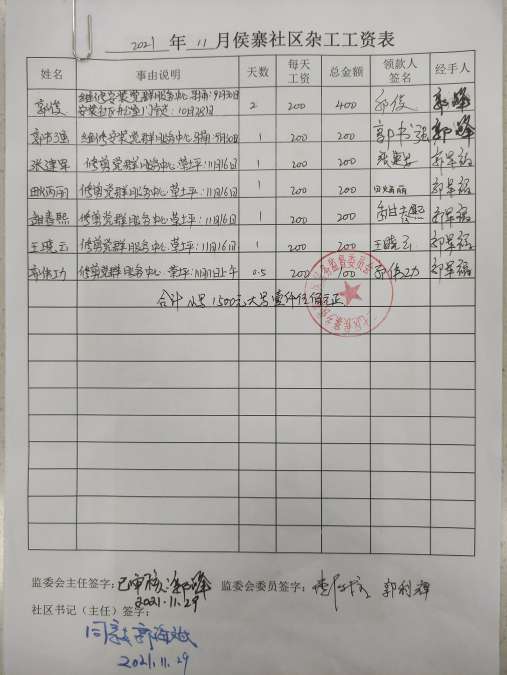 2021 年 11 月侯寨社区杂工工资表
姓名 事由说明 天数 每天工资 总金额 领款人签名 经手人
郭俊 继修安装党群服务中心 9月30日 10月28日 2 200 400 郭俊 郭峰
郭书强 继修安装党群服务中心 9月30日 1 200 200 郭书强 郭峰
张建军 修剪党群服务中心草坪:11月16日 1 200 200 张建军
田炳丽 修剪党群服务中心草坪:11月16日 1 200 200 田炳丽
修剪党群服务中心草坪:11月16日 1 200 200
王晓云 修剪党群服务中心草坪:11月16日 1 200 200 王晓云
修剪党群服务中心草坪:11月11日上午 0.5 200 100
合计 小写 1500元 大写 壹仟伍佰元正
监督委员会
监委会主任签字: 已审核 郭峰 监委会委员签字: 郭利祥
2021.11.29
社区书记(主任)签字:
同意
2021.11.29